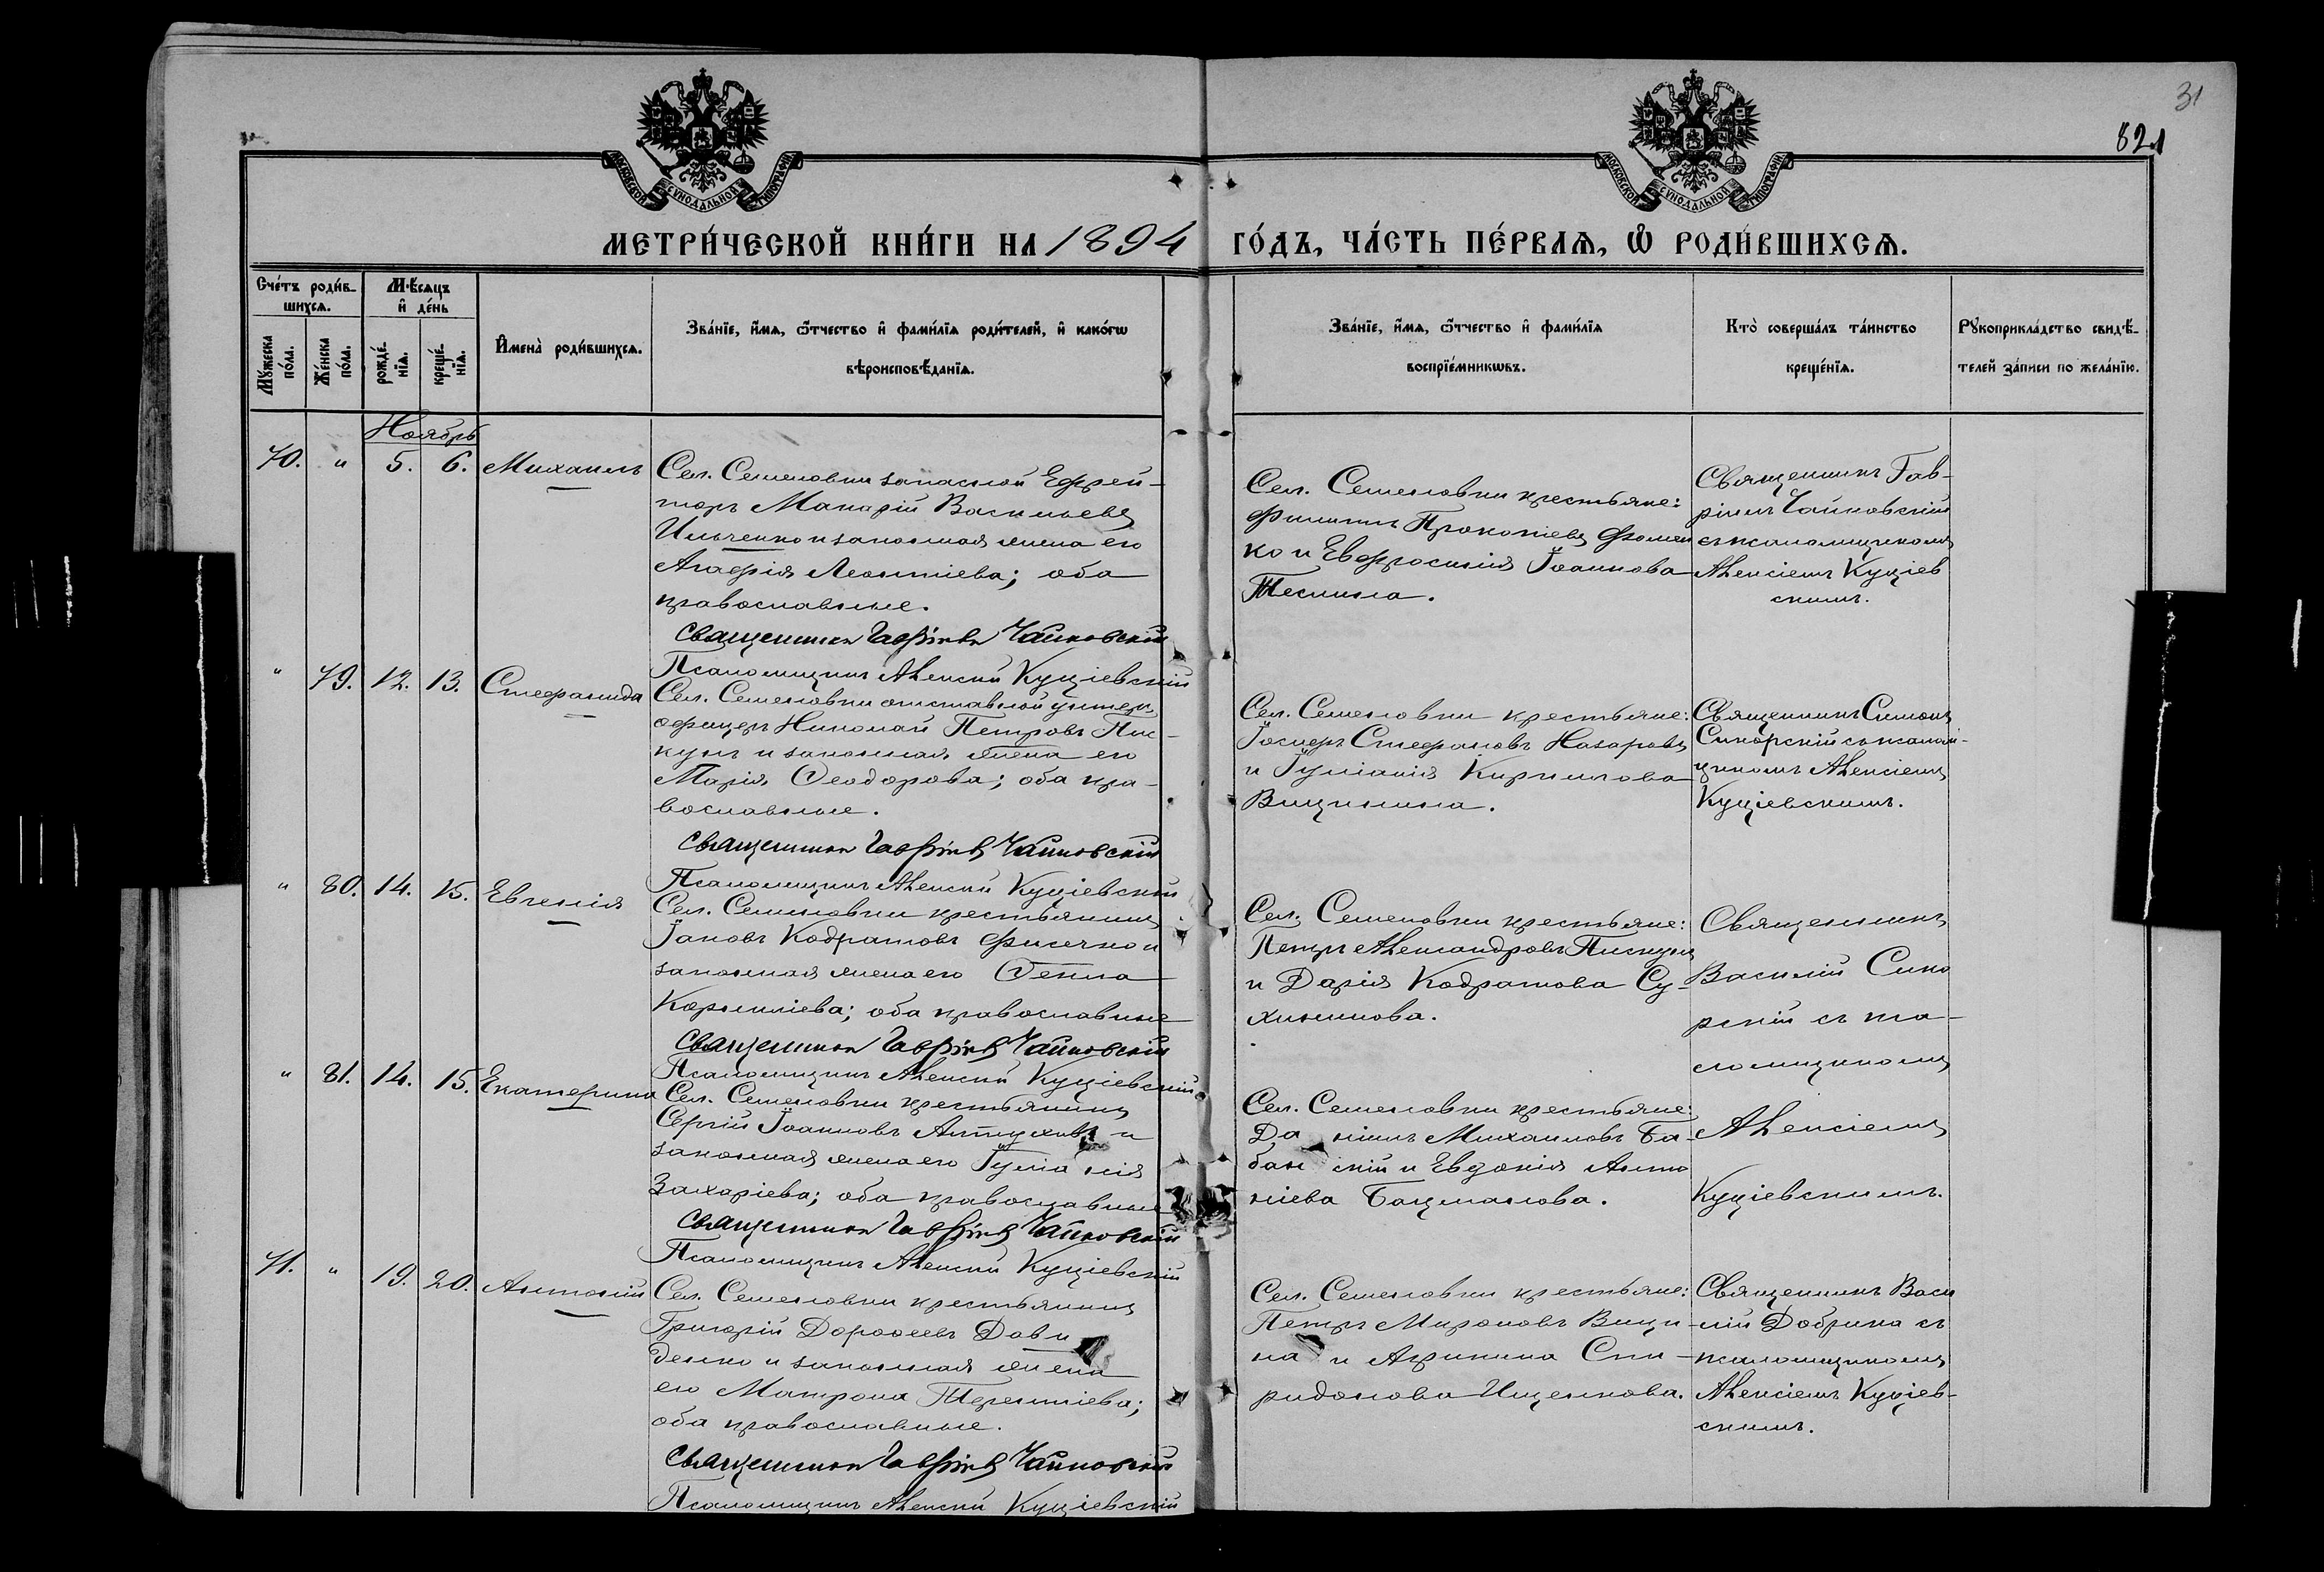 31
821
МОСКОВСКОЙ СУНОДАЛЬНОЙ ТИПОГРАФІИ
МОСКОВСКОЙ СУНОДАЛЬНОЙ ТИПОГРАФІИ
МЕТРИ́ЧЕСКОЙ КНИ́ГИ НА 1894 ГО́ДЪ, ЧА́СТЬ ПЕ́РВАѦ, Ѡ РОДИ́ВШИХСѦ.
Сче́тъ роди́в-
шихсѧ.
Мꙋжеска по́ла.
Же́нска по́ла.
Мѣ́сѧцъ
и де́нь
рожде́-
нїѧ.
креще́-
нїѧ.
Имена̀ роди́вшихсѧ.
Зва́нїе, и́мѧ, ѻ́тчество и фами́лїѧ роди́телей, и како́гѡ
вѣроисповѣ́данїѧ.
Зва́нїе, и́мѧ, ѻ́тчество и фами́лїѧ
воспрїе́мникѡвъ.
Кто̀ соверша́лъ та́инство
креще́нїѧ.
Рꙋкоприкла́дство свидѣ́-
телей за́писи по жела́нїю.
Ноябрь
70. " 5. 6. Михаилъ
Сел. Семеновки запасной Ефрей-
торъ Макарій Васильевъ
Ильченко и законная жена его
Агафія Леонтіева; оба
православные.
Священникъ Гавріилъ Чайковскій
Псаломщикъ Алексій Куціевскій
Сел. Семеновки крестьяне:
Филиппъ Прокопіевъ Фомен
ко и Евфросинія Іоаннова
Теснина.
Священникъ Гав-
ріилъ Чайковскій
съ псаломщикомъ
Алексіемъ Куціев
скимъ.
" 79. 12. 13. Стефанида
Сел. Семеновки отставной унтеръ
офицеръ Николай Петровъ Пис-
кунъ и законная жена его
Марія Ѳеодорова; оба пра-
вославные.
Священникъ Гавріилъ Чайковскій
Псаломщикъ Алексій Куціевскій
Сел. Семеновки крестьяне:
Іосифъ Стефановъ Назаровъ
и Іуліанія Кириллова
Вищинина.
Священникъ Симонъ
Сикорскій съ псалом-
щикомъ Алексіемъ
Куціевскимъ.
" 80. 14. 15. Евгенія
Сел. Семеновки крестьянинъ
Іаковъ Кодратовъ Фисечко и
законная жена его Ѳекла
Корниліева; оба православные
Священникъ Гавріилъ Чайковскій
Псаломщикъ Алексій Куціевскій
Сел. Семеновки крестьяне:
Петръ Александровъ Пискунъ
и Дарія Кодратова Су-
хинина.
Священникъ
Василій Сико
рскій съ пса-
ломщикомъ
Алексіемъ
Куціевскимъ.
" 81. 14. 15. Екатерина
Сел. Семеновки крестьянинъ
Сергій Іоанновъ и
законная жена его Іуліанія
Захаріева; оба православные
Священникъ Гавріилъ Чайковскій
Псаломщикъ Алексій Куціевскій
Сел. Семеновки крестьяне:
Даніилъ Михаиловъ Ба-
банскій и Евдокія Анто
ніева Бацманова.
71. " 19. 20. Антоній
Сел. Семеновки крестьянинъ
Григорій Дороѳеевъ Дави
денко и законная жена
его Матрона Терентіева;
оба православные.
Священникъ Гавріилъ Чайковскій
Псаломщикъ Алексій Куціевскій
Сел. Семеновки крестьяне:
Петръ Мироновъ Вищи-
на и Агрипина Спи-
ридонова Ищенкова.
Священникъ Васи
лій Добрина съ
псаломщикомъ
Алексіемъ Куціев-
скимъ.